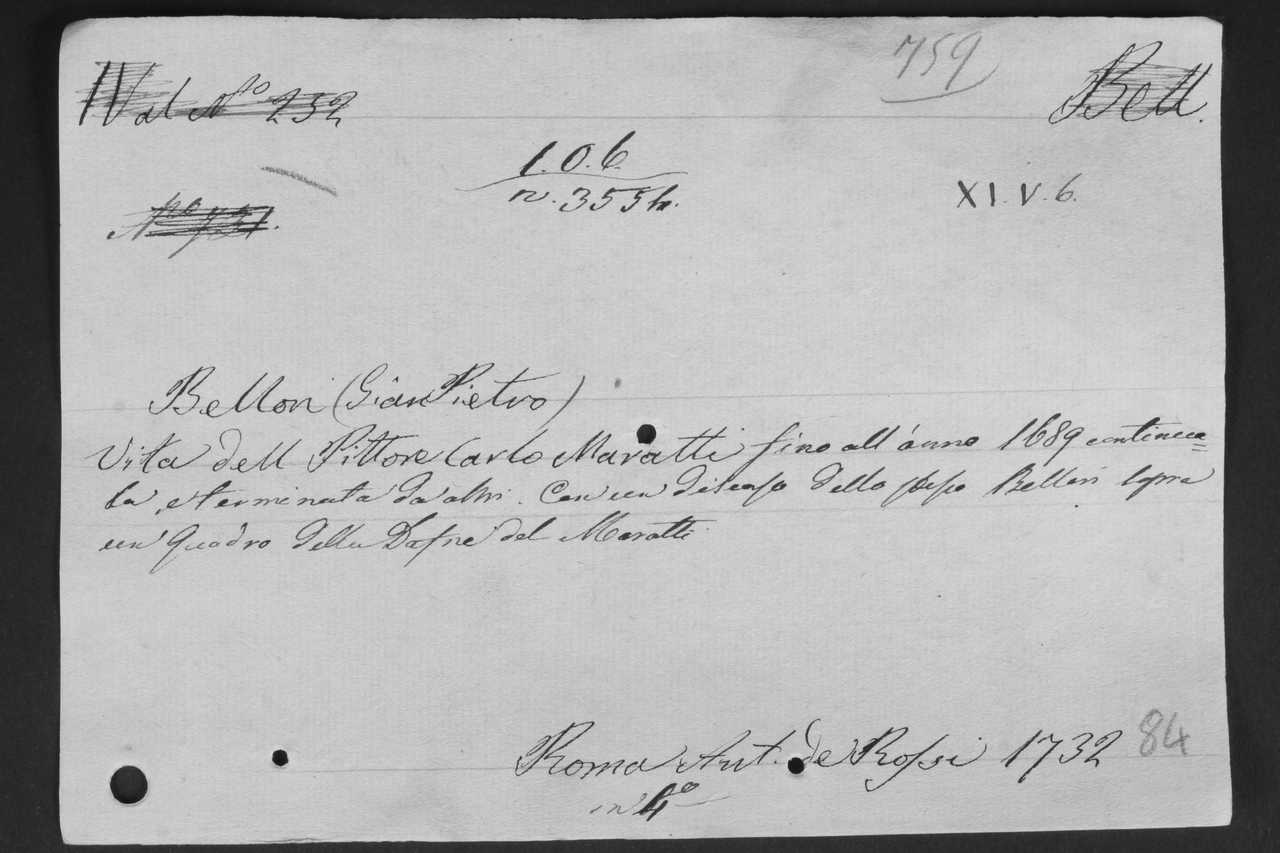 759
Bell.
IV al Nº 252
1.0.6.
n. 355 h.
XI.V.6.
Nº 731.
Bellori (Gian Pietro)
Vita dell Pittore Carlo Maratti fino all'anno 1689 continua=
ta, e terminata da altri. Con un discorso dello stesso Bellori sopra
un' quadro della Dafne del Maratti
Roma Ant. de Rossi 1732
84
in 4º